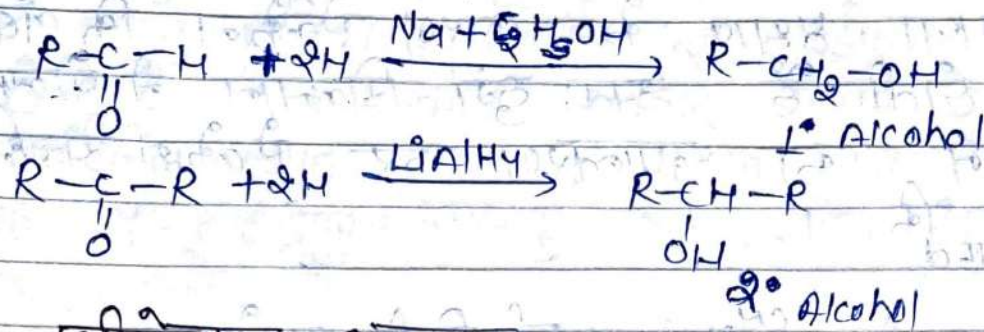 R-C-H + 2H Na + C2H5OH → R-CH2-OH
||
O
1° Alcohol
R-C-R + 2H LiAlH4 → R-CH-R
|| |
O OH
2° Alcohol